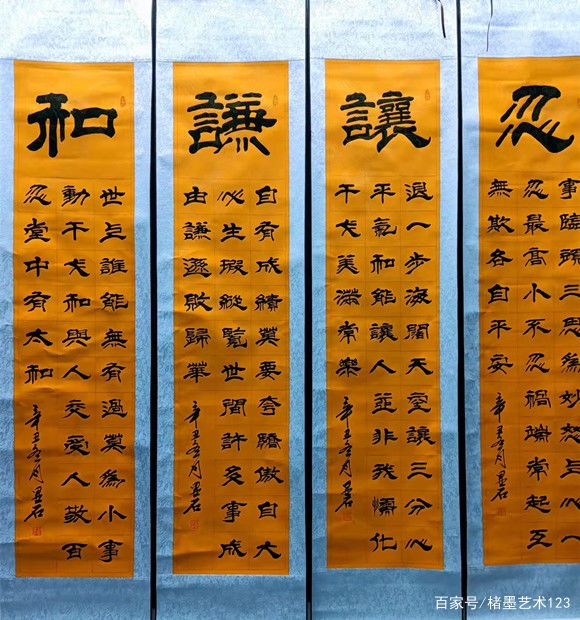 忍
事臨頭三思為妙怒上心一
忍最高小不忍禍端常起互
無欺各自平安
辛丑冬月 墨石
讓
退一步海闊天空讓三分心
平氣和能讓人並非我懦化
干戈美滿常樂
辛丑冬月 墨石
謙
自有成績莫要夸驕傲自大
必生瑕縱覽世間許多事成
由謙遜敗歸華
辛丑冬月 墨石
和
世上誰能無有過莫為小事
動干戈和與人交愛人敬百
忍堂中有太和
辛丑冬月 墨石
百家号/楮墨艺术123